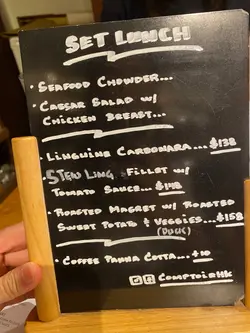 SET LUNCH
· SEAFOOD CHOWDER...
· CAESAR SALAD W/
CHICKEN BREAST...
· LINGUINE CARBONARA... $138
· STERLING FILLET W/
TOMATO SAUCE... $148
· ROASTED MAGRET W/ ROASTED
SWEET POTATO & VEGGIES... $158
(DUCK)
· COFFEE PANNA COTTA... +10
COMPTOIRHK